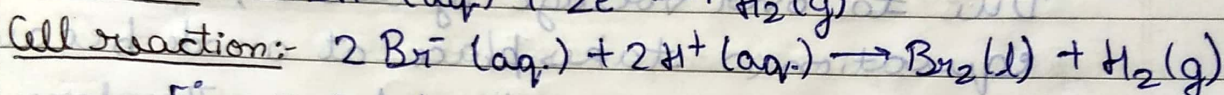 2e⁻ H₂(g)
Cell reaction:- 2 Br⁻ (aq.) + 2H⁺ (aq.) → Br₂(l) + H₂(g)